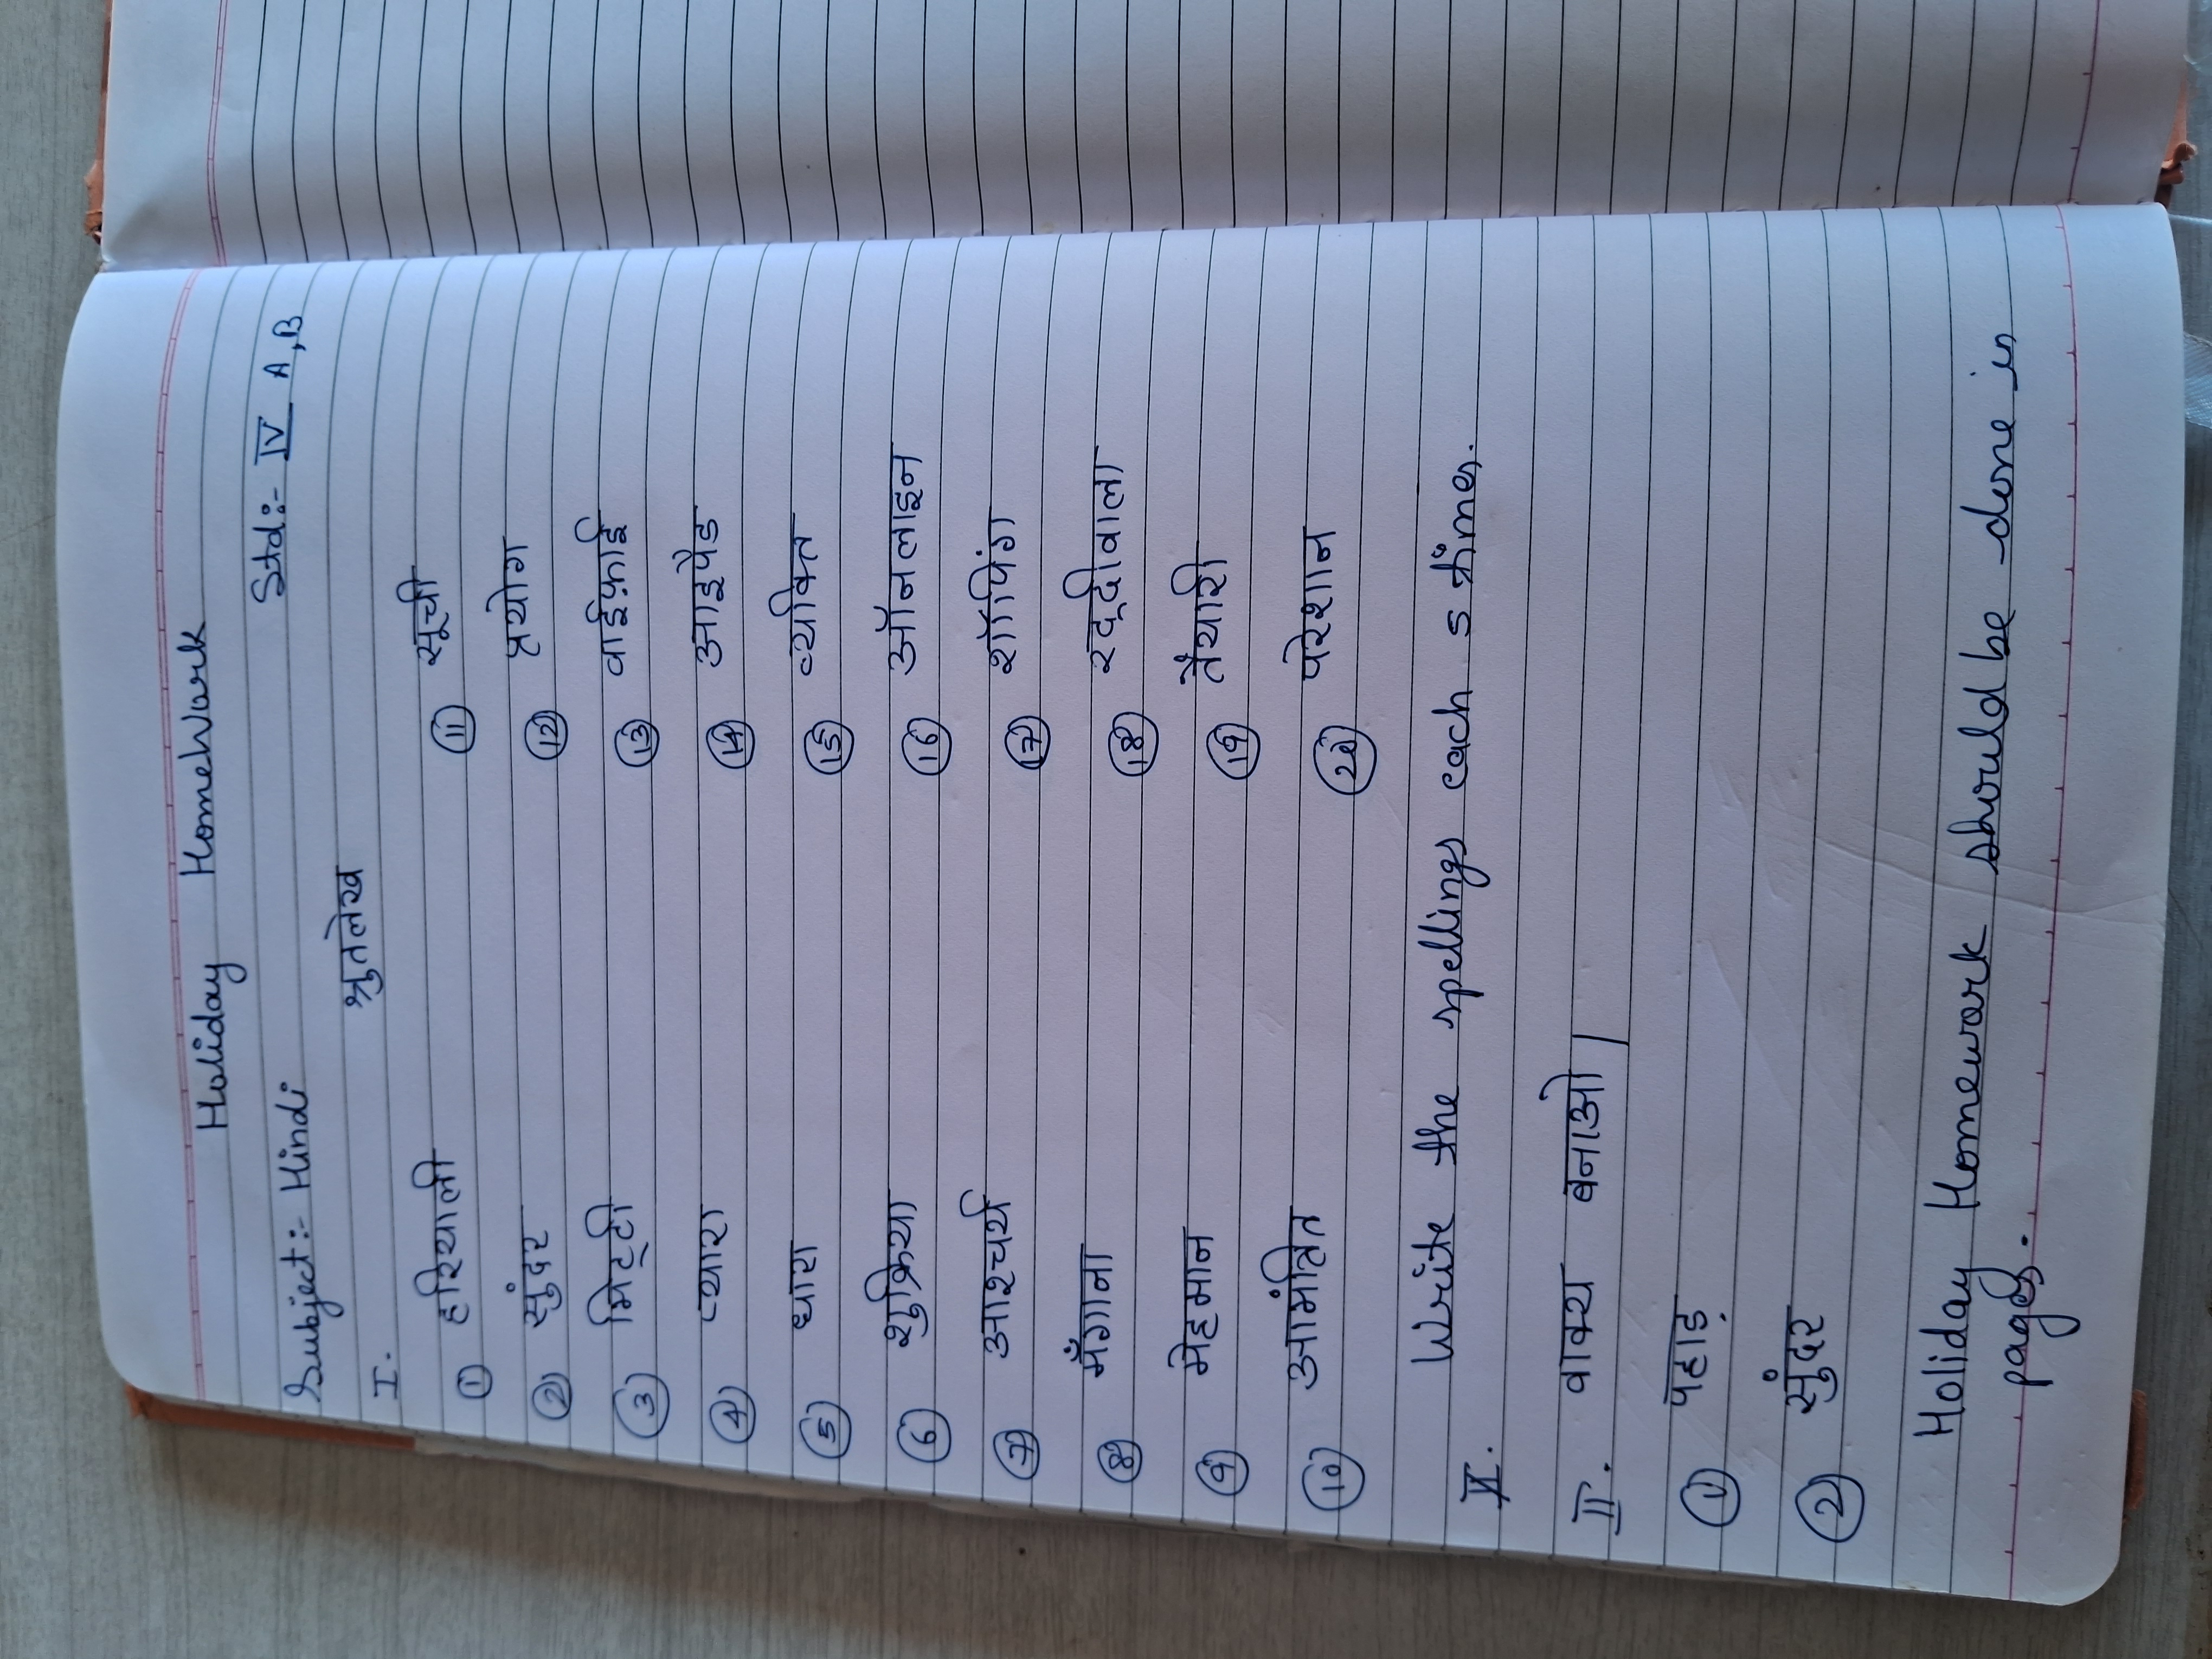 Holiday Homework
Subject:- Hindi Std:- IV A,B
श्रुतलेख
I.
① हरियाली ⑪ सूची
② सुंदर ⑫ प्रयोग
③ मिट्टी ⑬ वाईफ़ाई
④ प्यारा ⑭ आइपैड
⑤ धारा ⑮ व्यक्ति
⑥ शुक्रिया ⑯ ऑनलाइन
⑦ आश्चर्य ⑰ शॉपिंग
⑧ मँगाना ⑱ रद्दीवाला
⑨ मेहमान ⑲ तैयारी
⑩ आमंत्रित ⑳ परेशान
Write the spellings each 5 times.
II. वाक्य बनाओ।
① पहाड़
② सुंदर
Holiday Homework should be done in
pages.